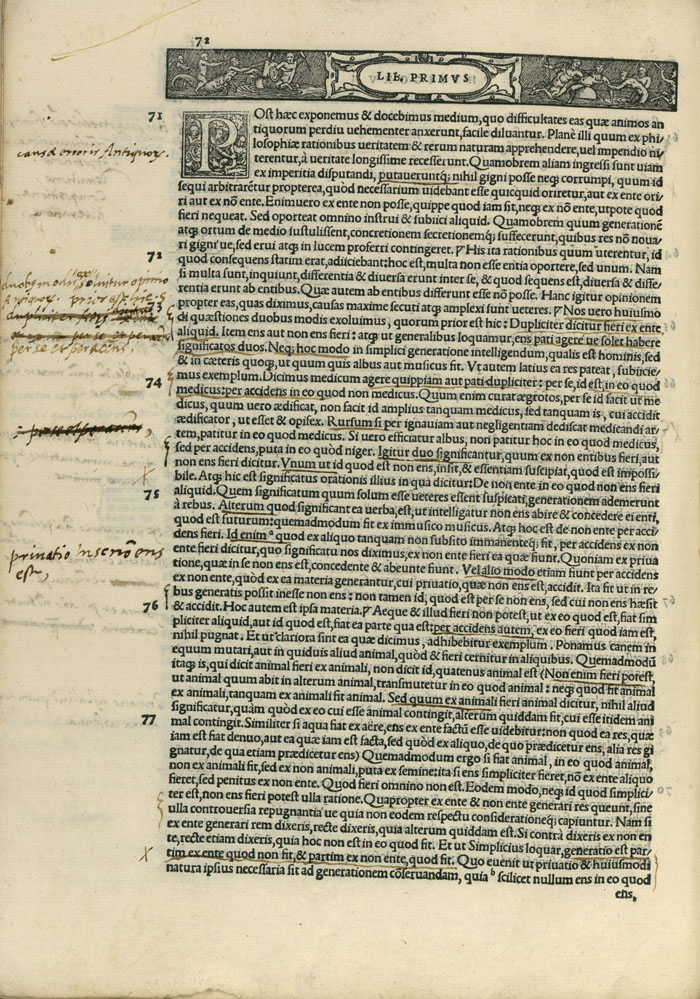 72
LIB. PRIMVS
71
POst hæc exponemus & docebimus medium, quo difficultates eas quæ animos an
tiquorum perdiu uehementer anxerunt, facile diluantur. Planè illi quum ex phi/
losophiæ rationibus ueritatem & rerum naturam apprehendere, uel impendio ni/
terentur, à ueritate longissime recesserunt. Quamobrem aliam ingressi sunt uiam
ex imperitia disputandi, putaueruntq; nihil gigni posse neq; corrumpi, quum id
sequi arbitrarētur propterea, quòd necessarium uidebant esse quicquid oriretur, aut ex ente ori/
ri aut ex nō ente. Enimuero ex ente non posse, quippe quod iam sit, neq; ex nō ente, utpote quod
fieri nequeat. Sed oporteat omnino instrui & subiici aliquid. Quamobrem quum generationē
atq; ortum de medio sustulissent, concretionem secretionemq; suffecerunt, quibus res nō noua/
ri gigni ue, sed erui atq; in lucem proferri contingeret. His ita rationibus quum uterentur, id
quod consequens statim erat, adiiciebant: hoc est, multa non esse entia oportere, sed unum. Nam
si multa sunt, inquiunt, differentia & diuersa erunt inter se, & quod sequens est, diuersa & diffe/
rentia erunt ab entibus. Quæ autem ab entibus differunt esse nō posse. Hanc igitur opinionem
propter eas, quas diximus, causas maxime secuti atq; amplexi sunt ueteres. Nos uero huiusmo
di quæstiones duobus modis exoluimus, quorum prior est hic: Dupliciter dicitur fieri ex ente
aliquid. Item ens aut non ens fieri: atq; ut generalibus loquamur, ens pati agere ue solet habere
significatos duos. Neq; hoc modo in simplici generatione intelligendum, qualis est hominis, sed
& in cæteris quoq;, ut quum quis albus aut musicus fit. Vt autem latius ea res pateat, subiicie/
mus exemplum. Dicimus medicum agere quippiam aut pati dupliciter: per se, id est, in eo quod
medicus: per accidens in eo quod non medicus. Quum enim curat ægrotos, per se id facit ut me
dicus, quum uero ædificat, non facit id amplius tanquam medicus, sed tanquam is, cui accidit
ædificator, ut esset & opifex. Rursum si per ignauiam aut negligentiam dediscat medicandi ar/
tem, patitur in eo quod medicus. Si uero efficiatur albus, non patitur hoc in eo quod medicus,
sed per accidens, puta in eo quòd niger. Igitur duo significantur, quum ex non entibus fieri, aut
non ens fieri dicitur. Vnum ut id quod est non ens, insit, & essentiam suscipiat, quod est impossi/
bile. Atq; hic est significatus orationis illius in qua dicitur: De non ente in eo quod non ens fieri
aliquid. Quem significatum quum solum esse ueteres essent suspicati, generationem ademerunt
à rebus. Alterum quod significant ea uerba, est, ut intelligatur non ens abire & concedere ei enti,
quod est futurum: quemadmodum fit ex immusico musicus. Atq; hoc est de non ente per acci/
dens fieri. Id enim quod ex aliquo tanquam non subsito immanenteq; fit, per accidens ex non
ente fieri dicitur, quo significatu nos diximus, ex non ente fieri ea quæ fiunt. Quoniam ex priua
tione, quæ in se non ens est, concedente & abeunte fiunt. Vel alio modo etiam fiunt per accidens
ex non ente, quòd ex ea materia generantur, cui priuatio, quæ non ens est, accidit. Ita fit ut in re/
bus generatis possit inesse non ens: non tamen id, quod est per se non ens, sed cui non ens hæsit
& accidit. Hoc autem est ipsa materia. Aeque & illud fieri non potest, ut ex eo quod est, fiat sim
pliciter aliquid, aut id quod est, fiat ea parte qua est: per accidens autem, ex eo fieri quod iam est,
nihil pugnat. Et ut clariora sint ea quæ dicimus, adhibebitur exemplum. Ponamus canem in
equum mutari, aut in quiduis aliud animal, quòd & fieri cernitur in aliquibus. Quemadmodū
itaq; is, qui dicit animal fieri ex animali, non dicit id, quatenus animal est (Non enim fieri potest,
ut animal quum abit in alterum animal, transmutetur in eo quod animal: neq; quòd fit animal
ex animali, tanquam ex animali fit animal. Sed quum ex animali fieri animal dicitur, nihil aliud
significatur, quàm quòd ex eo cui esse animal contingit, alterum quiddam fit, cui esse itidem ani
mal contingit. Similiter si aqua fiat ex aëre, ens ex ente factū esse uidebitur: non quod ea res, quæ
iam est fiat denuo, aut ea quæ iam est facta, sed quòd ex aliquo, de quo prædicetur ens, alia res gi
gnatur, de qua etiam prædicetur ens) Quemadmodum ergo si fiat animal, in eo quod animal,
non ex animali fit, sed ex non animali, puta ex semine: ita si ens simpliciter fieret, nō ex ente aliquo
fieret, sed penitus ex non ente. Quod fieri omnino non est. Eodem modo, neq; id quod simplici/
ter est, non ens fieri potest ulla ratione. Quapropter ex ente & non ente generari res queunt, sine
ulla controuersia repugnantia ue quia non eodem respectu considerationeq; capiuntur. Nam si
ex ente generari rem dixeris, recte dixeris, quia alterum quiddam est. Si contrà dixeris ex non en
te, recte etiam dixeris, quia hoc non est in eo quod fit. Et ut Simplicius loquar, generatio est par/
tim ex ente quod non fit, & partim ex non ente, quod fit. Quo euenit ut priuatio & huiusmodi
natura ipsius necessaria sit ad generationem cōseruandam, quia b scilicet nullum ens in eo quod
ens,
causa erroris Antiquor.
72
duobus modis soluitur opinio
Antiquor.
73
per se et per accens.
74
75
priuatio in se nō ens
est,
76
77